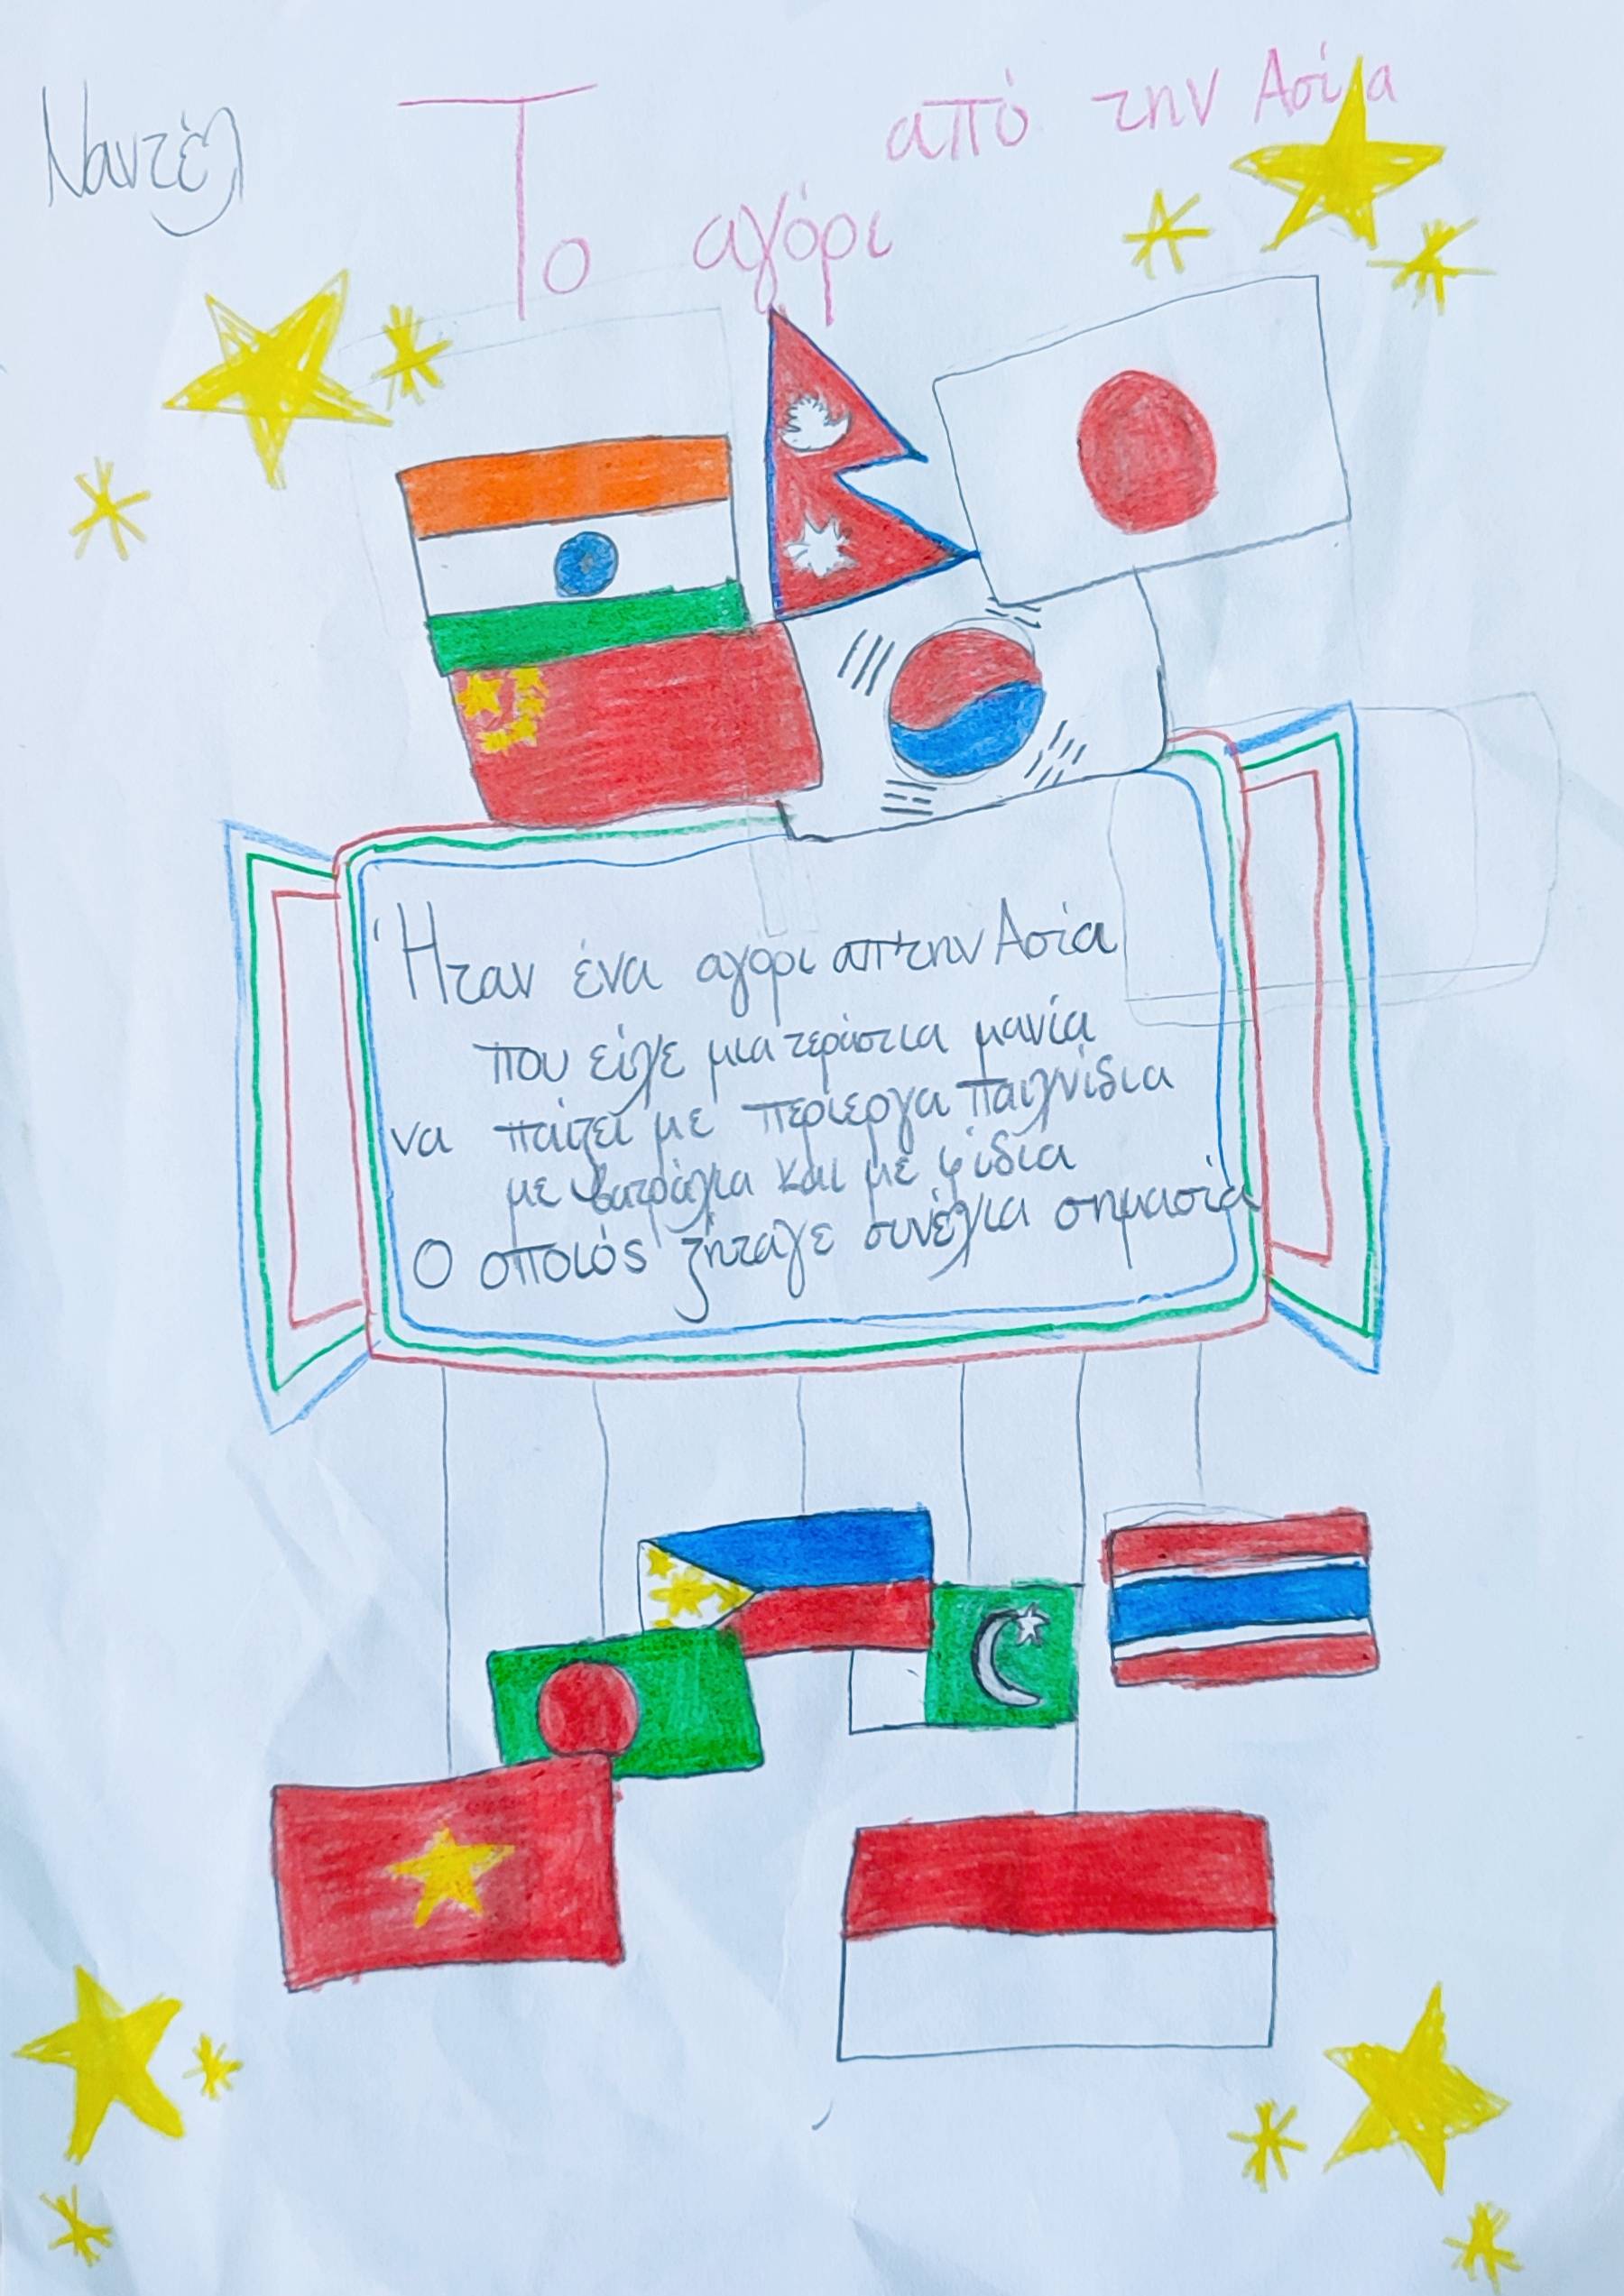 Ναντέλ
Το αγόρι από την Ασία
Ήταν ένα αγόρι απ'την Ασία
που είχε μια τεράστια μανία
να παίζει με περίεργα παιχνίδια
με βατράχια και με φίδια
Ο οποίος ζήταγε συνέχια σημασία